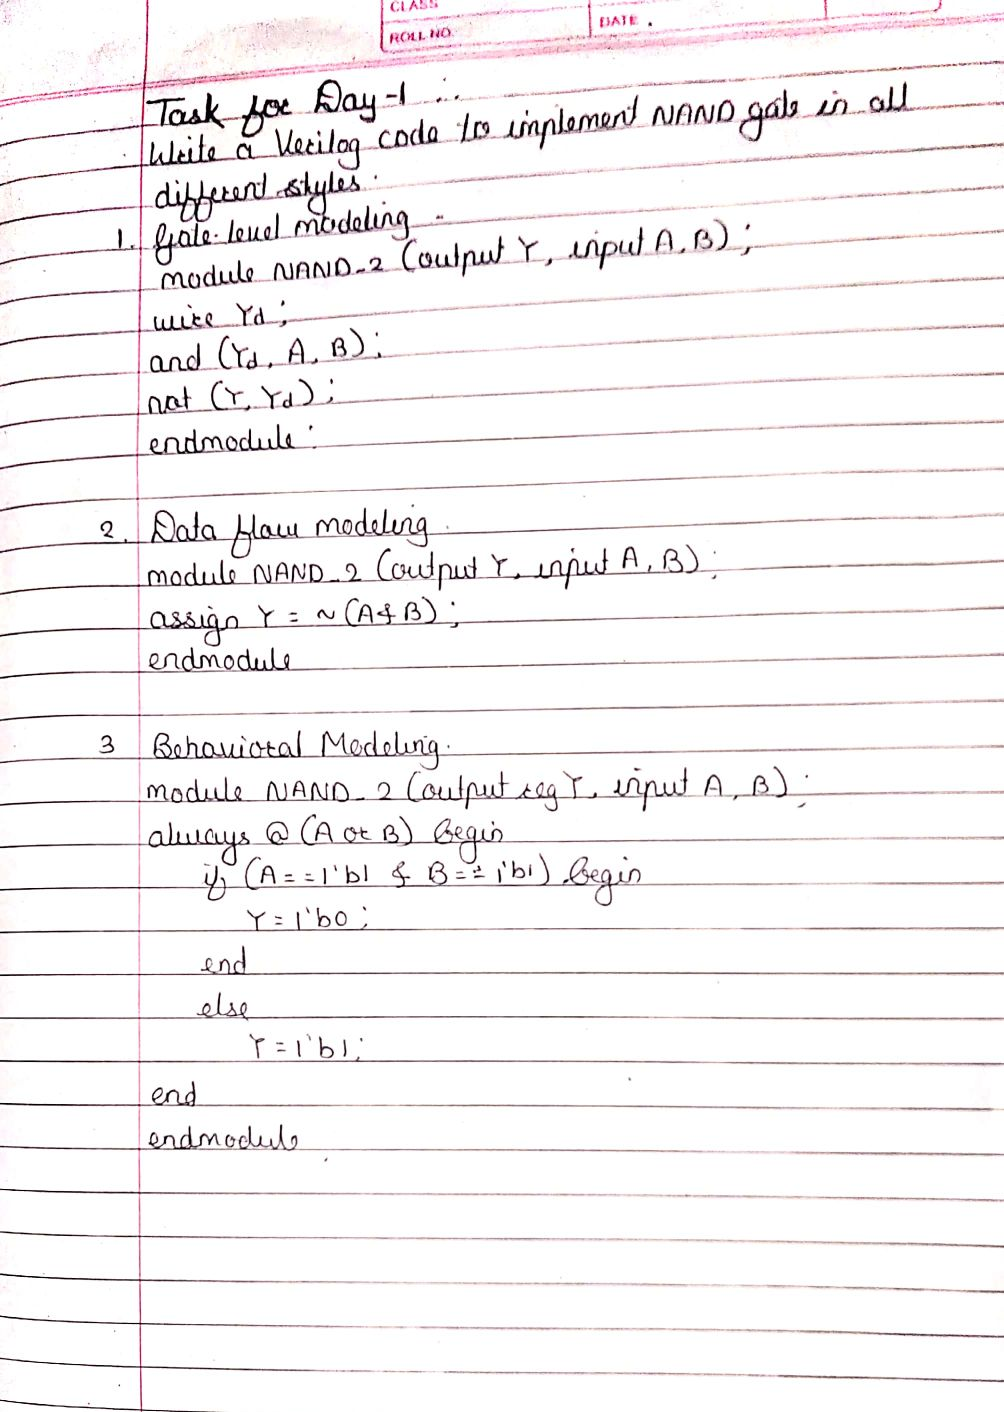 CLASS
ROLL NO.
DATE
Task for Day-1 :.
Write a Verilog code to implement NAND gate in all
different styles.
1. Gate-level modeling -
module NAND_2 (output Y, input A, B);
wire Yd;
and (Yd, A, B);
not (Y, Yd);
endmodule:
2. Data flow modeling.
module NAND_2 (output Y, input A, B);
assign Y = ~(A & B);
endmodule
3 Behavioral Modeling.
module NAND_2 (output reg Y, input A, B);
always @ (A or B) begin
if (A == 1'b1 & B == 1'b1) begin
Y = 1'b0;
end
else
Y = 1'b1;
end
endmodule